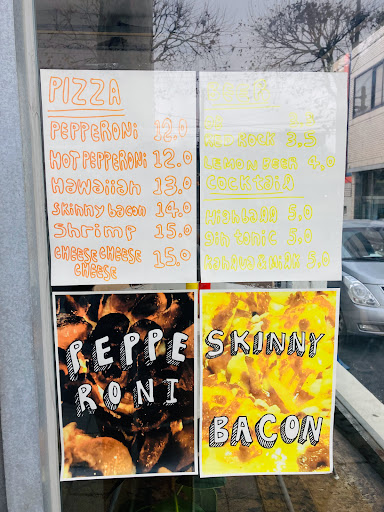 PIZZA
PEPPERONI 12.0
HOT PEPPERONI 12.0
HAWAiiAN 13.0
SKINNY bACON 14.0
Shrimp 15.0
CHEESE CHEESE
CHEESE 15.0
3.5
LEMON 4.0
COCKTAIL
HIGHBALL 5.0
GIN TONIC 5.0
5.0
PEPPE
RONI
SKINNY
BACON